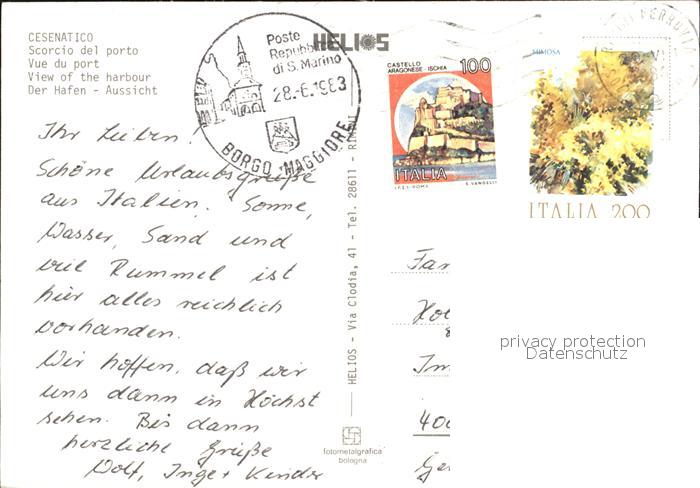 CESENATICO
Scorcio del porto
Vue du port
View of the harbour
Der Hafen - Aussicht
Poste
Repubbl
di S. Marino
28.-6.1983
BORGO MAGGIORE
HELIOS
CASTELLO
ARAGONESE - ISCHIA
100
ITALIA
I.P.Z.S. - ROMA
E. VANGELLI
MIMOSA
ITALIA 200
FERROVIA
Ihr Lieben!
Schöne Urlaubsgrüße
aus Italien. Sonne,
Wasser, Sand und
viel Rummel ist
hier alles reichlich
vorhanden.
Wir hoffen, daß wir
uns dann in Höchst
sehen. Bis dann
herzliche Grüße
Wolf, Inge + Kinder
HELIOS - Via Clodia, 41 - Tel. 28611 - RIMINI
fotometalgrafica
bologna
Fam
Hol
Im
400
Ger
privacy protection
Datenschutz